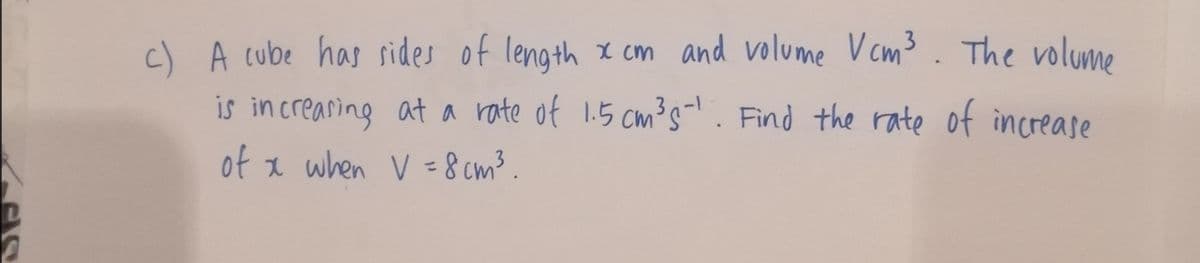 c) A cube has sides of length x cm and volume V cm³. The volume
is increasing at a rate of 1.5 cm³s⁻¹. Find the rate of increase
of x when V = 8 cm³.